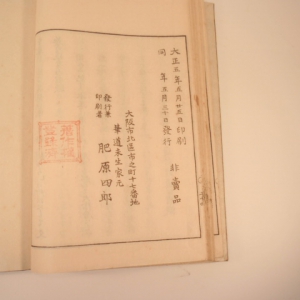 大正五年五月廿五日印刷
同 年五月三十日發行
非賣品
大阪市北區市之町十七番地
華道未生家元
發行兼
印刷者
肥原四郎